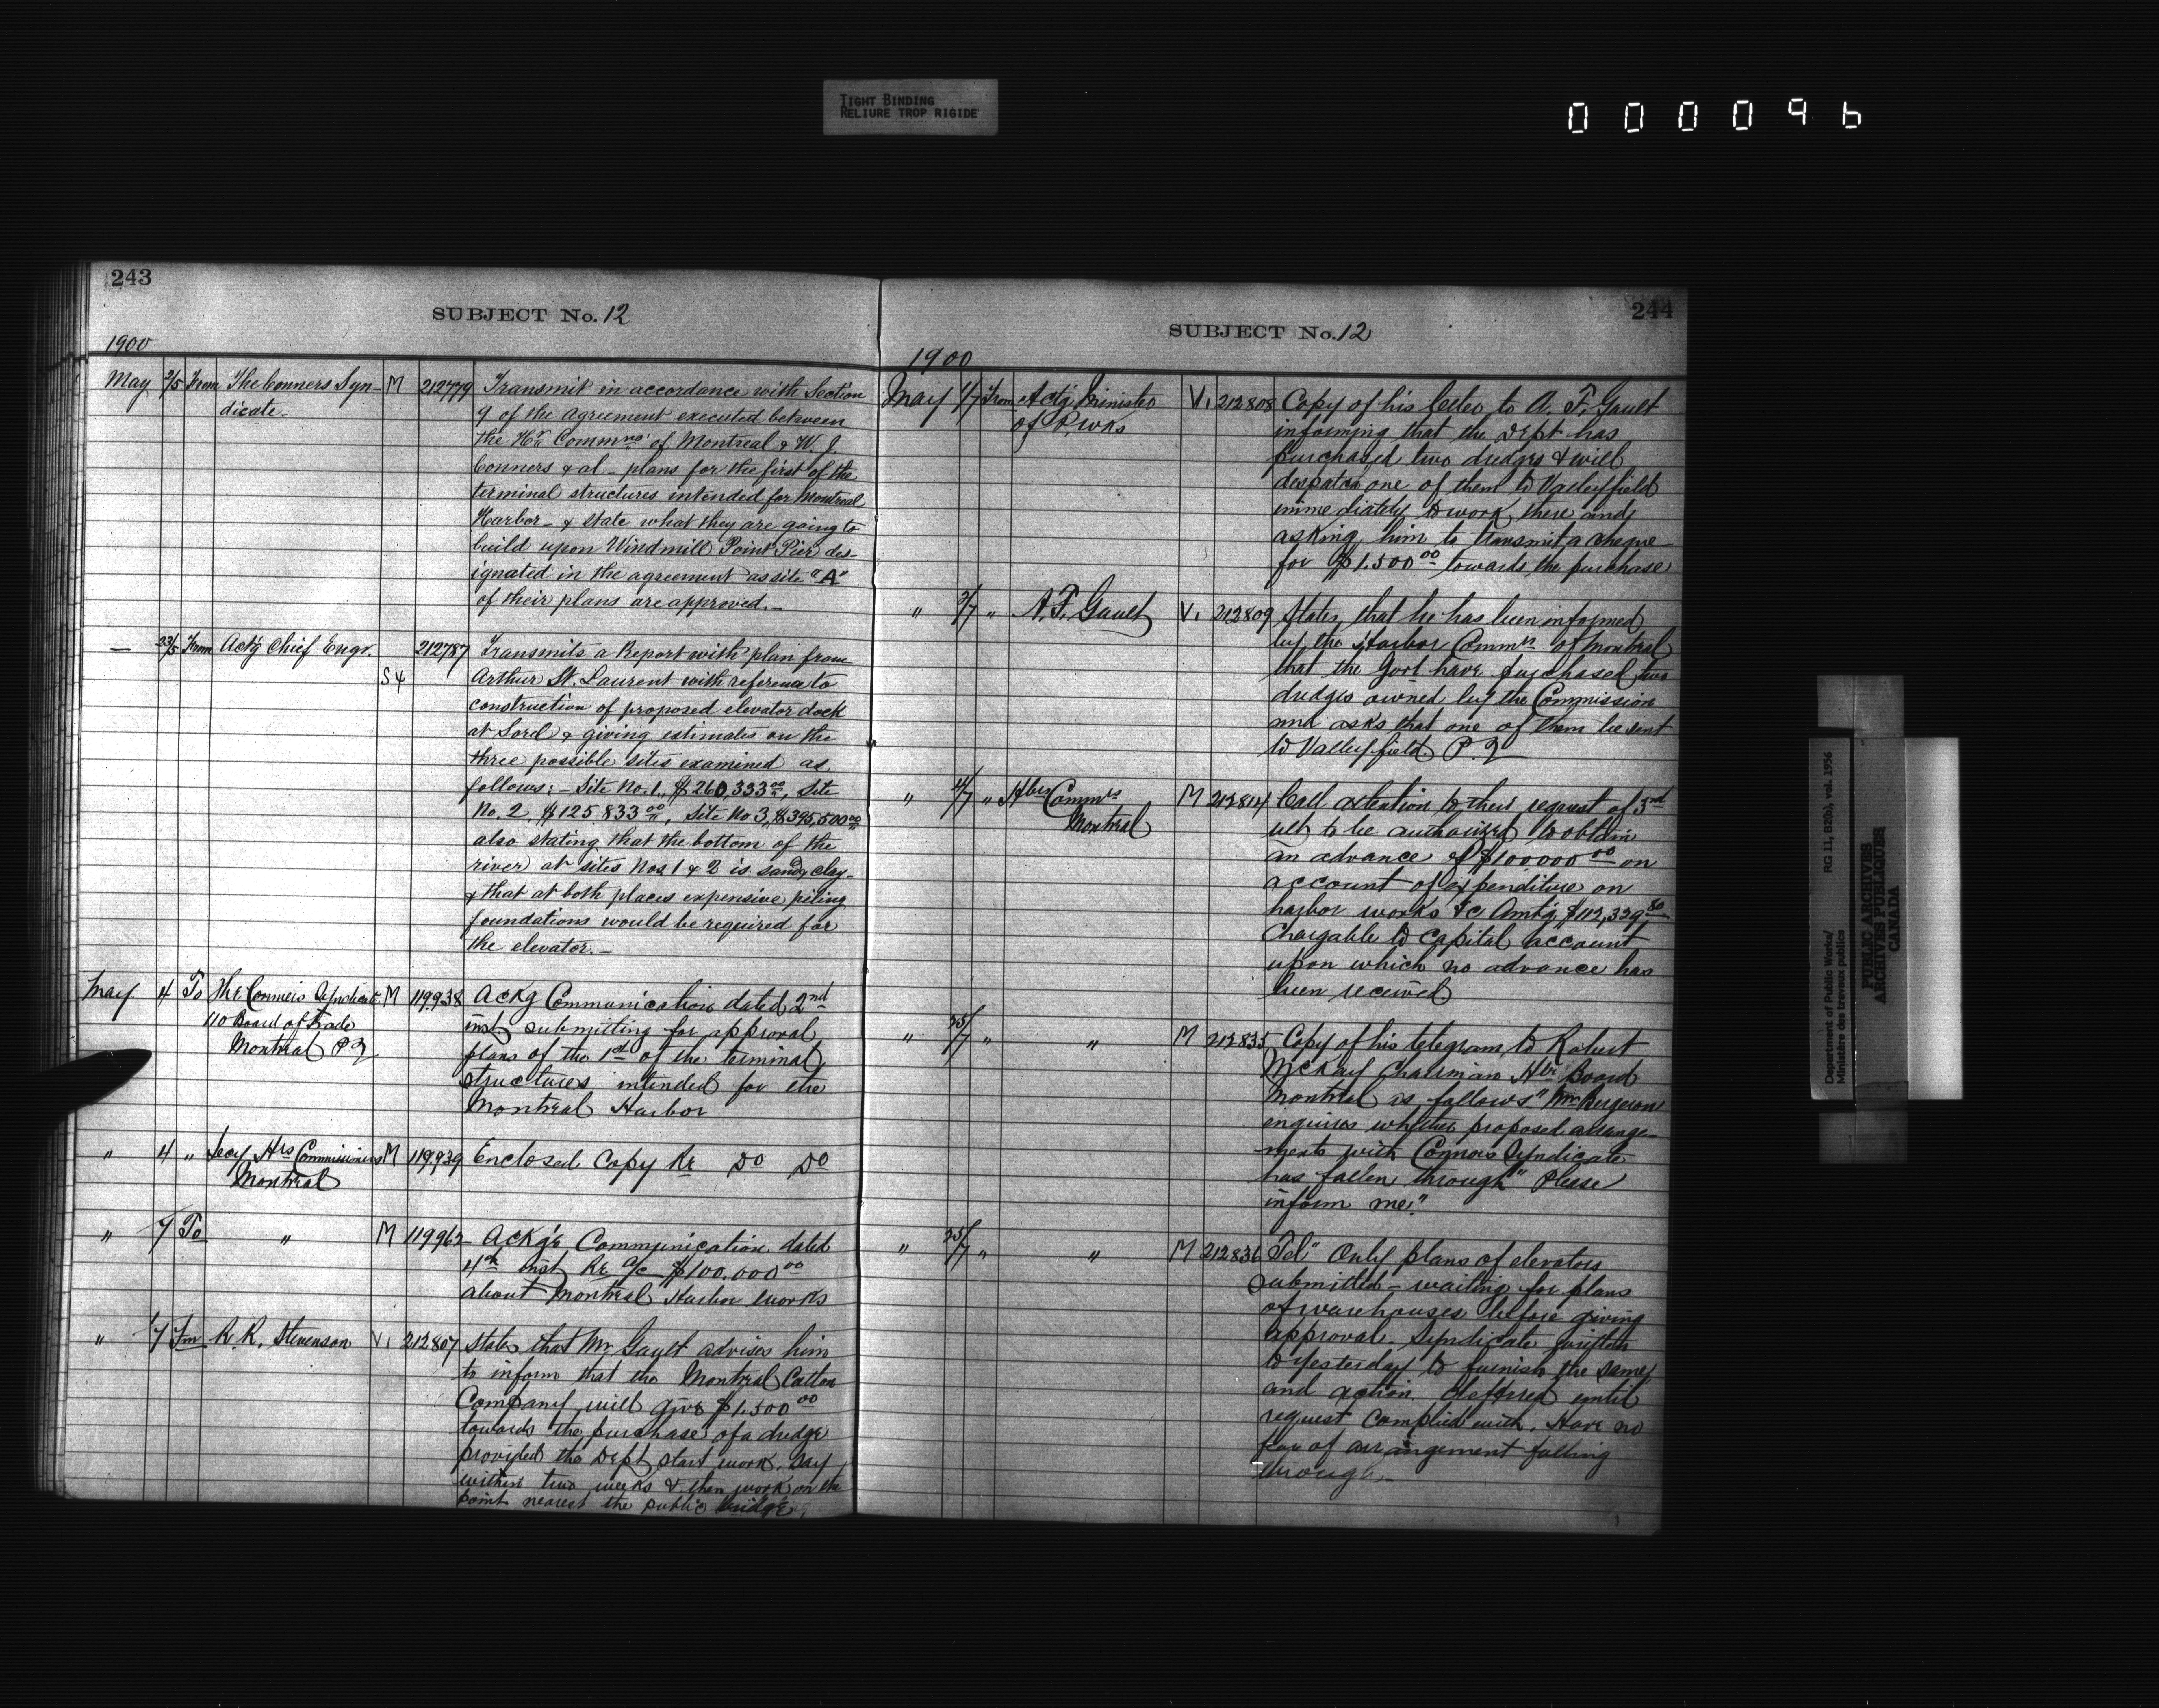 TIGHT BINDING
RELIURE TROP RIGIDE
000096
243
SUBJECT No. 12
1900
May 2/5 From The Conners Syn- M 212779 Transmit in accordance with Section
dicate_ 9 of the agreement executed between
the Hr. Commrs of Montreal & W. J.
Conners & al _ plans for the first of the
terminal structures intended for Montreal
Harbor _ & state what they are going to
build upon Windmill Point Pier des-
ignated in the agreement as site "A"
of their plans are approved._
— 23/5 From Actg Chief Engr. 212787 Transmits a Report with plan from
S4 Arthur St. Laurent with reference to
construction of proposed elevator dock
at Sorel & giving estimates on the
three possible sites examined as
follows:_ Site No. 1, $260,333 00, Site
No. 2, $125833 00, Site No 3, $395,500 00
also stating that the bottom of the
river at sites Nos 1 & 2 is sandy clay_
& that at both places expensive piling
foundations would be required for
the elevator._
May 4 To The Conners Syndicate M 119938 Ackg Communication dated 2nd
110 Board of Trade inst submitting for approval
Montreal P2 plans of the 1st of the terminal
structures intended for the
Montreal Harbor
" 4 " Secy Hrs Commissioners M 119939 Enclosed Copy Re Do Do
Montreal
" 7 To " M 119962 Ackg'e Communication dated
4th inst Re a/c $100.000 00
about Montreal Harbor Works
" 1/7 Fm R. R. Stevenson V. 212807 States that Mr. Gault advises him
to inform that the Montreal Cotton
Company will give $1.500 00
towards the purchase of a dredge
provided the Dept start work, say
within two weeks & then work on the
point nearest the public bridge,
244
SUBJECT No. 12
1900
May 1/7 From Actg Minister V. 212808 Copy of his letter to A. F. Gault
of P. Wks informing that the Dept has
purchased two dredges & will
despatch one of them to Valleyfield
immediately to work there and
asking him to transmit a cheque
for $1.500 00 towards the purchase
" 2/7 " A. F. Gault V. 212809 States that he has been informed
by the Harbor Commrs of Montreal
that the Govt have purchased two
dredges owned by the Commission
and asks that one of them be sent
to Valleyfield P. Q
" 4/7 " Hbrs Commrs M 212814 Call attention to their request of 3rd
Montreal ult to be authorized to obtain
an advance of $100000 00 on
account of expenditure on
harbor works &c Amtg $112,329 80
Chargable to Capital account
upon which no advance has
been received
" 25/7 " " M 212835 Copy of his telegram to Robert
McKay Chairman Hbr Board
Montreal as follows "Mr Bergeron
enquires whether proposed arrange-
ments with Connors Syndicate
has fallen through" Please
inform me."
" 25/7 " " M 212836 Tel " Only plans of elevators
submitted - waiting for plans
of warehouses before giving
approval. Syndicate written
to yesterday to furnish the same
and action deffered until
request Complied with. Have no
fear of arrangement falling
through_
Department of Public Works/
Ministère des travaux publics
RG 11, B2(b), vol. 1956
PUBLIC ARCHIVES
ARCHIVES PUBLIQUES
CANADA